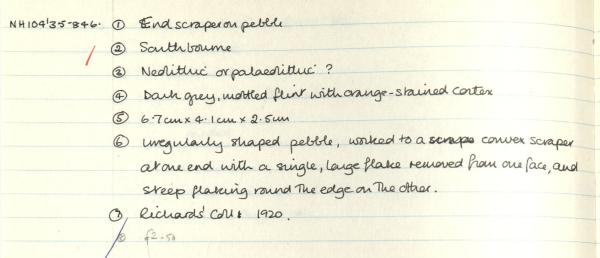 NH104'35-846. ① End scraper on pebble
② Southbourne
③ Neolithic or palaeolithic?
④ Dark grey, mottled flint with orange-stained cortex
⑤ 6.7cm x 4.1cm x 2.5cm
⑥ Irregularly shaped pebble, worked to a scrape convex scraper
at one end with a single, large flake removed from one face, and
steep flaking round the edge on the other.
⑦ Richards' Coll: 1920.
⑧ £2-50